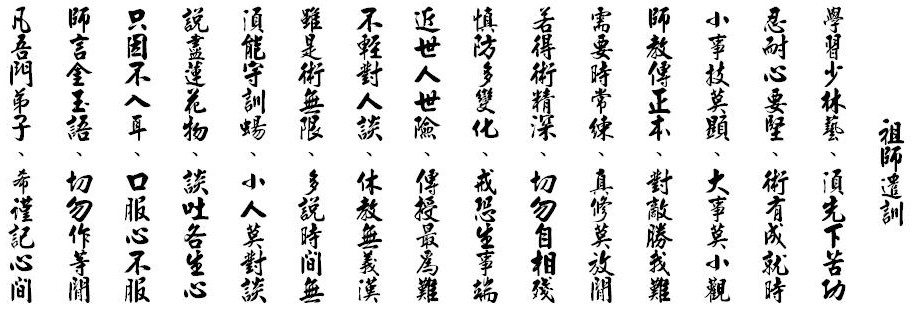 祖師遺訓
學習少林藝、須先下苦功
忍耐心要堅、術有成就時
小事技莫顯、大事莫小觀
師教傳正本、對敵勝我難
需要時常練、真修莫放閒
若得術精深、切勿自相殘
慎防多變化、戒恐生事端
近世人世險、傳授最為難
不輕對人談、休教無義漢
雖是術無限、多說時間無
須能守訓蜴、小人莫對談
說盡蓮花物、談吐各生心
只因不入耳、口服心不服
師言金玉語、切勿作等閒
凡吾門弟子、希謹記心間